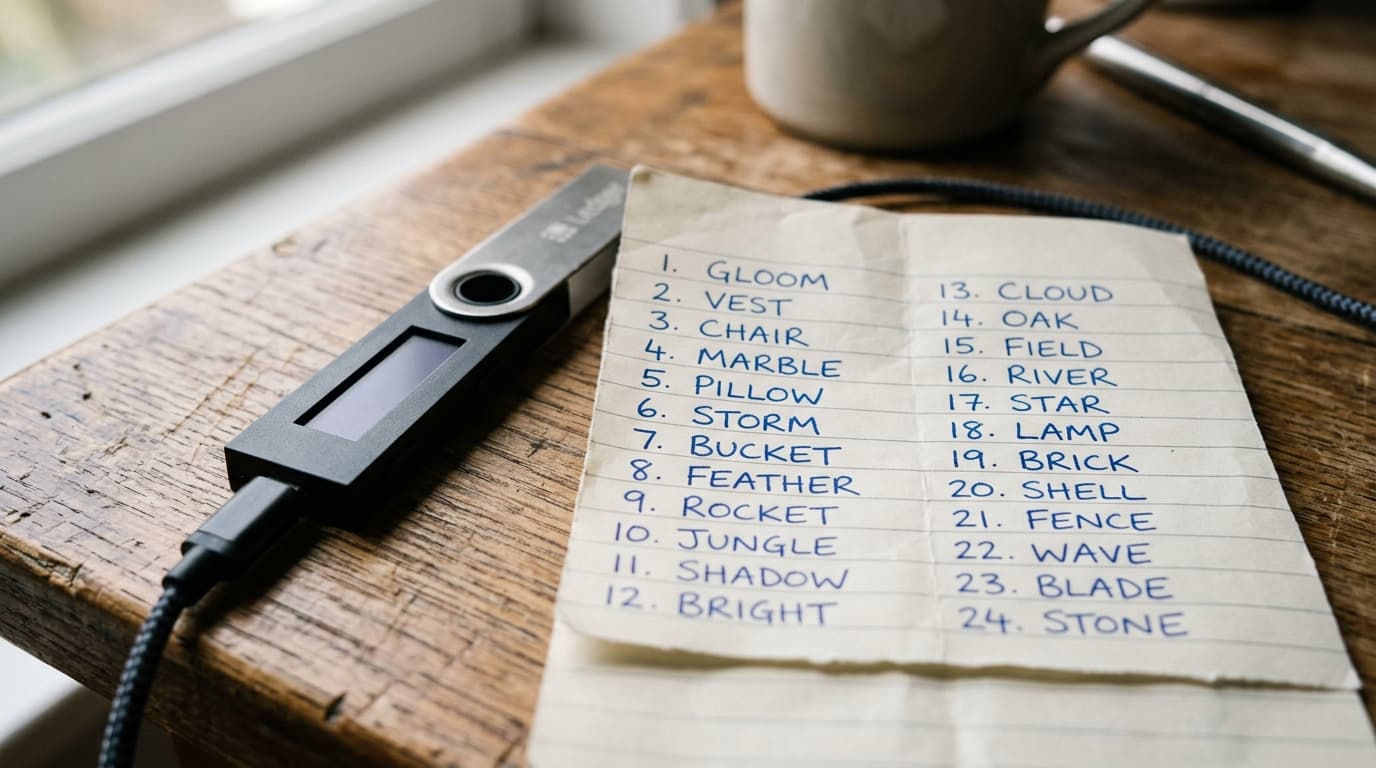 Ledger
1. GLOOM
2. VEST
3. CHAIR
4. MARBLE
5. PILLOW
6. STORM
7. BUCKET
8. FEATHER
9. ROCKET
10. JUNGLE
11. SHADOW
12. BRIGHT
13. CLOUD
14. OAK
15. FIELD
16. RIVER
17. STAR
18. LAMP
19. BRICK
20. SHELL
21. FENCE
22. WAVE
23. BLADE
24. STONE